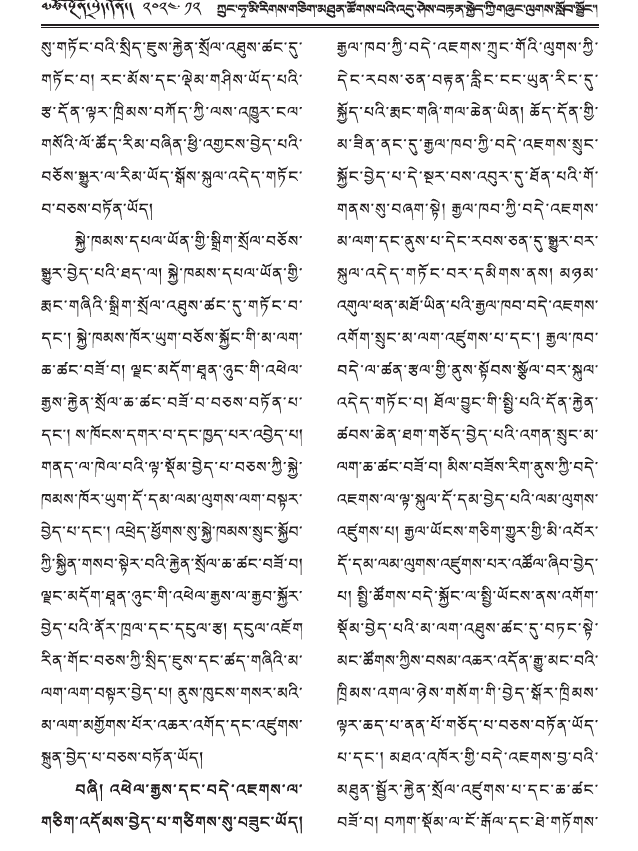 ༢༠༢༤.༡༢ ཀྲུང་ཧྭ་མི་རིགས་གཅིག་མཐུན་ཚོགས་པའི་འདུ་ཤེས་བརྟན་སྐྱེད་ཀྱི་གཞུང་ལུགས་སློབ་སྦྱོང་།
སུ་གཏོང་བའི་སྲིད་ཇུས་རྐྱེན་སྲོལ་འཐུས་ཚང་དུ་
གཏོང་བ། རང་མོས་དང་ལྡེམ་གཤིས་ཡོད་པའི་
རྩ་དོན་ལྟར་ཁྲིམས་བཀོད་ཀྱི་ལས་འཁྱུར་ངལ་
གསོའི་ལོ་ཚོད་རིམ་བཞིན་ཕྱི་འགྱངས་བྱེད་པའི་
བཅོས་སྒྱུར་ལ་རིམ་ཡོད་སྒོས་སྐུལ་འདེད་གཏོང་
བ་བཅས་བཏོན་ཡོད།
སྐྱེ་ཁམས་དཔལ་ཡོན་གྱི་སྒྲིག་སྲོལ་བཅོས་
སྒྱུར་བྱེད་པའི་ཐད་ལ། སྐྱེ་ཁམས་དཔལ་ཡོན་གྱི་
རྨང་གཞིའི་སྒྲིག་སྲོལ་འཐུས་ཚང་དུ་གཏོང་བ་
དང་། སྐྱེ་ཁམས་ཁོར་ཡུག་བཅོས་སྐྱོང་གི་མ་ལག་
ཆ་ཚང་བཟོ་བ། ལྗང་མདོག་ཐུན་ཉུང་གི་འཕེལ་
རྒྱས་རྐྱེན་སྲོལ་ཆ་ཚང་བཟོ་བ་བཅས་བཏོན་པ་
དང་། ས་ཁོངས་དགར་བ་དང་ཁྱད་པར་འབྱེད་པ།
གནད་ལ་ཁེལ་བའི་ལྟ་སྡོམ་བྱེད་པ་བཅས་ཀྱི་སྐྱེ་
ཁམས་ཁོར་ཡུག་དོ་དམ་ལམ་ལུགས་ལག་བསྟར་
བྱེད་པ་དང་། འཕྲེད་ཕྱོགས་སུ་སྐྱེ་ཁམས་སྲུང་སྐྱོབ་
ཀྱི་སྐྱིན་གསབ་སྟེར་བའི་རྐྱེན་སྲོལ་ཆ་ཚང་བཟོ་བ།
ལྗང་མདོག་ཐུན་ཉུང་གི་འཕེལ་རྒྱས་ལ་རྒྱབ་སྐྱོར་
བྱེད་པའི་ནོར་ཁྲལ་དང་དངུལ་རྩ། དངུལ་འཇོག
རིན་གོང་བཅས་ཀྱི་སྲིད་ཇུས་དང་ཚད་གཞིའི་མ་
ལག་ལག་བསྟར་བྱེད་པ། ནུས་ཁུངས་གསར་མའི་
མ་ལག་མགྱོགས་པོར་འཆར་འགོད་དང་འཛུགས་
སྐྲུན་བྱེད་པ་བཅས་བཏོན་ཡོད།
བཞི། འཕེལ་རྒྱས་དང་བདེ་འཇགས་ལ་
གཅིག་འདོམས་བྱེད་པ་གཙིགས་སུ་བཟུང་ཡོད།
རྒྱལ་ཁབ་ཀྱི་བདེ་འཇགས་ཀྲུང་གོའི་ལུགས་ཀྱི་
དེང་རབས་ཅན་བརྟན་ཀླིང་ངང་ཡུན་རིང་དུ་
སྐྱོད་པའི་རྨང་གཞི་གལ་ཆེན་ཡིན། ཆོད་དོན་གྱི་
མ་ཟིན་ནང་དུ་རྒྱལ་ཁབ་ཀྱི་བདེ་འཇགས་སྲུང་
སྐྱོང་བྱེད་པ་དེ་སྔར་བས་འབུར་དུ་ཐོན་པའི་གོ་
གནས་སུ་བཞག་སྟེ། རྒྱལ་ཁབ་ཀྱི་བདེ་འཇགས་
མ་ལག་དང་ནུས་པ་དེང་རབས་ཅན་དུ་སྒྱུར་བར་
སྐུལ་འདེད་གཏོང་བར་དམིགས་ནས། མཉམ་
འགུལ་ཕན་མཐོ་ཡིན་པའི་རྒྱལ་ཁབ་བདེ་འཇགས་
འགོག་སྲུང་མ་ལག་འཛུགས་པ་དང་། རྒྱལ་ཁབ་
བདེ་ལ་ཚན་རྩལ་གྱི་ནུས་སྟོབས་སྩོལ་བར་སྐུལ་
འདེད་གཏོང་བ། ཐོལ་བྱུང་གི་སྤྱི་པའི་དོན་རྐྱེན་
ཚབས་ཆེན་ཐག་གཅོད་བྱེད་པའི་འགན་སྲུང་མ་
ལག་ཆ་ཚང་བཟོ་བ། མིས་བཟོས་རིག་ནུས་ཀྱི་བདེ་
འཇགས་ལ་ལྟ་སྐུལ་དོ་དམ་བྱེད་པའི་ལམ་ལུགས་
འཛུགས་པ། རྒྱལ་ཡོངས་གཅིག་གྱུར་གྱི་མི་འབོར་
དོ་དམ་ལམ་ལུགས་འཛུགས་པར་འཚོལ་ཞིབ་བྱེད་
པ། སྤྱི་ཚོགས་བདེ་སྐྱོང་ལ་སྤྱི་ཡོངས་ནས་འགོག་
སྡོམ་བྱེད་པའི་མ་ལག་འཐུས་ཚང་དུ་བཏང་སྟེ་
མང་ཚོགས་ཀྱིས་བསམ་འཆར་འདོན་རྒྱུ་མང་བའི་
ཁྲིམས་འགལ་ཉེས་གསོག་གི་བྱེད་སྒོར་ཁྲིམས་
ལྟར་ཆད་པ་ནན་པོ་གཅོད་པ་བཅས་བཏོན་ཡོད་
པ་དང་། མཐའ་འཁོར་གྱི་བདེ་འཇགས་བྱ་བའི་
མཐུན་སྦྱོར་རྐྱེན་སྲོལ་འཛུགས་པ་དང་ཆ་ཚང་
བཟོ་བ། བཀག་སྡོམ་ལ་ངོ་རྒོལ་དང་ཐེ་གཏོགས་